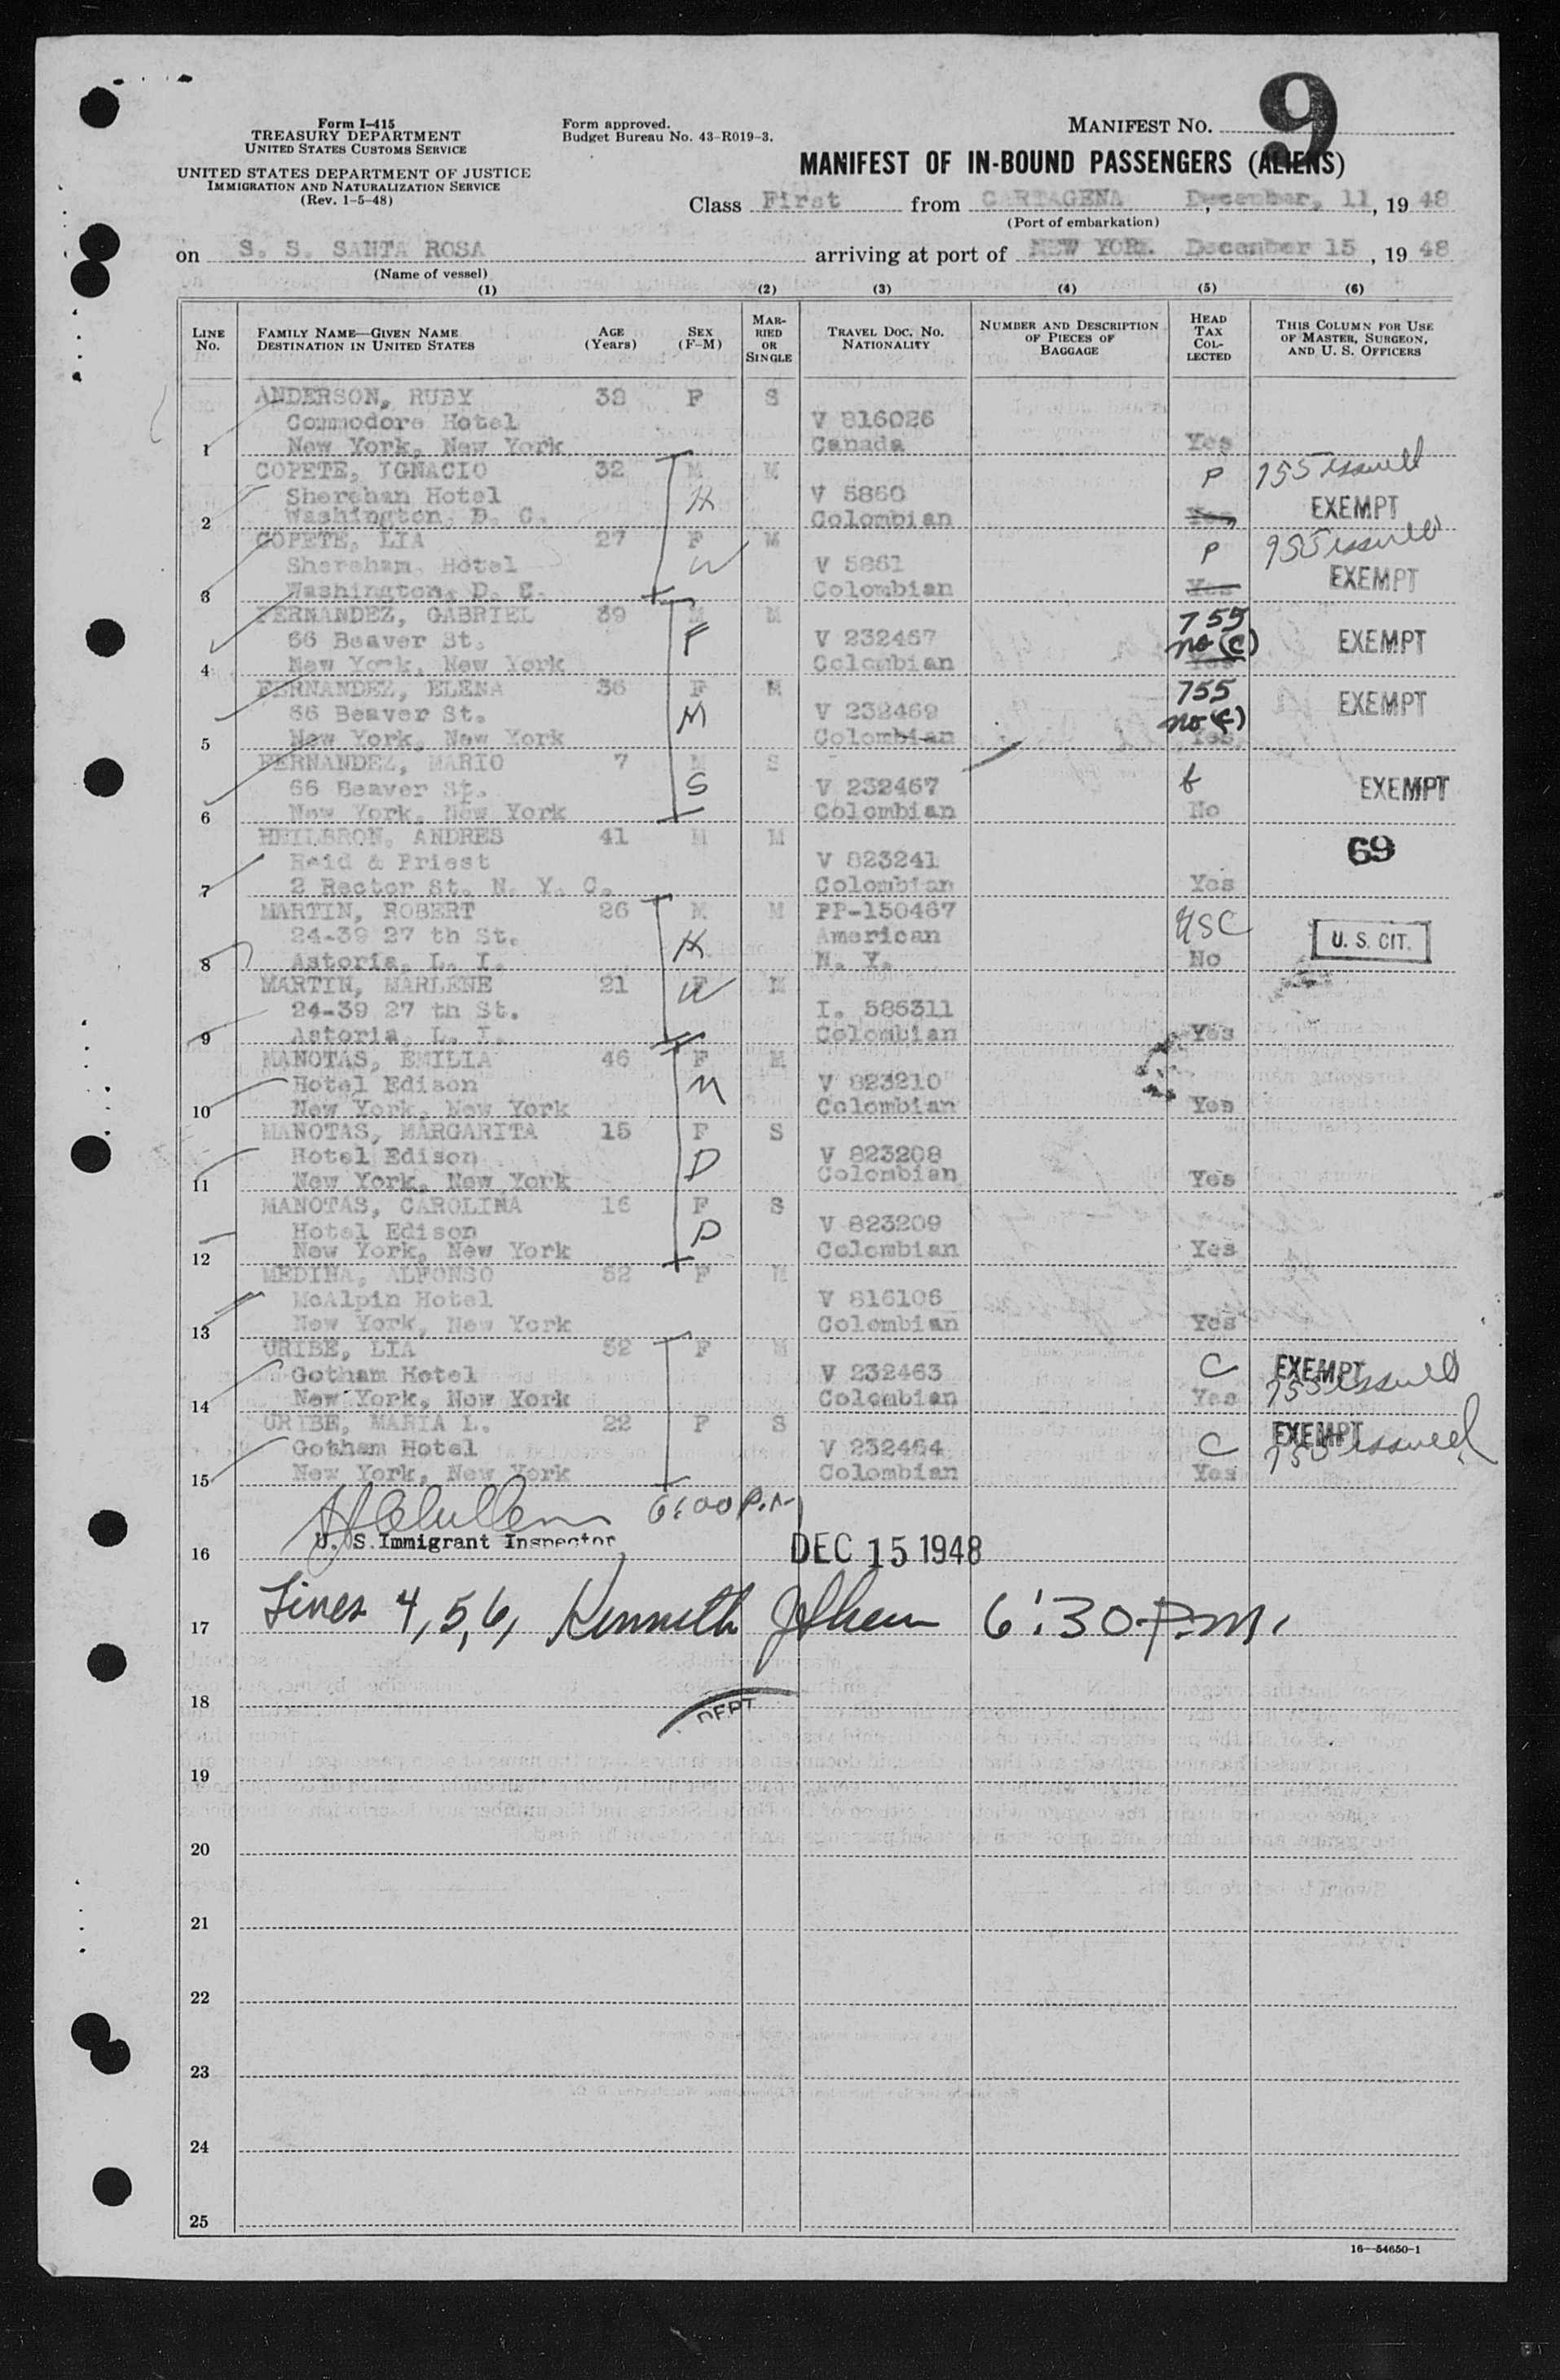 Form I-415
TREASURY DEPARTMENT
UNITED STATES CUSTOMS SERVICE
UNITED STATES DEPARTMENT OF JUSTICE
IMMIGRATION AND NATURALIZATION SERVICE
(Rev. 1-5-48)
Form approved.
Budget Bureau No. 43-R019-3.
MANIFEST NO. 9
MANIFEST OF IN-BOUND PASSENGERS (ALIENS)
Class First from CARTAGENA December, 11, 19 48
(Port of embarkation)
on S. S. SANTA ROSA arriving at port of NEW YORK. December 15, 19 48
(Name of vessel)
(1) (2) (3) (4) (5) (6)
LINE No. FAMILY NAME—GIVEN NAME DESTINATION IN UNITED STATES AGE (Years) SEX (F-M) MARRIED OR SINGLE TRAVEL DOC. NO. NATIONALITY NUMBER AND DESCRIPTION OF PIECES OF BAGGAGE HEAD TAX COLLECTED THIS COLUMN FOR USE OF MASTER, SURGEON, AND U. S. OFFICERS
ANDERSON, RUBY 38 F S
Commodore Hotel V 816026
1 New York, New York Canada Yes
COPETE, IGNACIO 32 M M P 755 issued
Shereham Hotel H V 5860 EXEMPT
2 Washington, D. C. Colombian Yes
COPETE, LIA 27 F M P 955 issued
Shereham, Hotel W V 5861 EXEMPT
3 Washington, D. C. Colombian Yes
FERNANDEZ, GABRIEL 39 M M 755
66 Beaver St. F V 232457 no (C) EXEMPT
4 New York, New York Colombian Yes
FERNANDEZ, ELENA 36 F M 755 EXEMPT
66 Beaver St. M V 232469 no (C)
5 New York, New York Colombian Yes
FERNANDEZ, MARIO 7 M S
66 Beaver St. S V 232467 EXEMPT
6 New York, New York Colombian No
HEILBRON, ANDRES 41 M M 69
Reid & Priest V 823241
7 2 Rector St. N. Y. C. Colombian Yes
MARTIN, ROBERT 26 M M PP-150467 USC
24-39 27 th St. H American U. S. CIT.
8 Astoria, L. I. N. Y. No
MARTIN, MARLENE 21 F M
24-39 27 th St. W I. 585311
9 Astoria, L. I. Colombian Yes
MANOTAS, EMILIA 46 F M
Hotel Edison M V 823210
10 New York, New York Colombian Yes
MANOTAS, MARGARITA 15 F S
Hotel Edison D V 823208
11 New York, New York Colombian Yes
MANOTAS, CAROLINA 16 F S
Hotel Edison D V 823209
12 New York, New York Colombian Yes
MEDINA, ALFONSO 52 F M
McAlpin Hotel V 816106
13 New York, New York Colombian Yes
URIBE, LIA 52 F M C EXEMPT
Gotham Hotel V 232463 755 issued
14 New York, New York Colombian Yes
URIBE, MARIA I. 22 F S C EXEMPT
Gotham Hotel V 232464 755 issued
15 New York, New York Colombian Yes
6:00 P.M
U. S. Immigrant Inspector
16 DEC 15 1948
17 Lines 4, 5, 6, Kenneth 6:30 P.M.
18 DEPT
19
20
21
22
23
24
25
16—54650-1